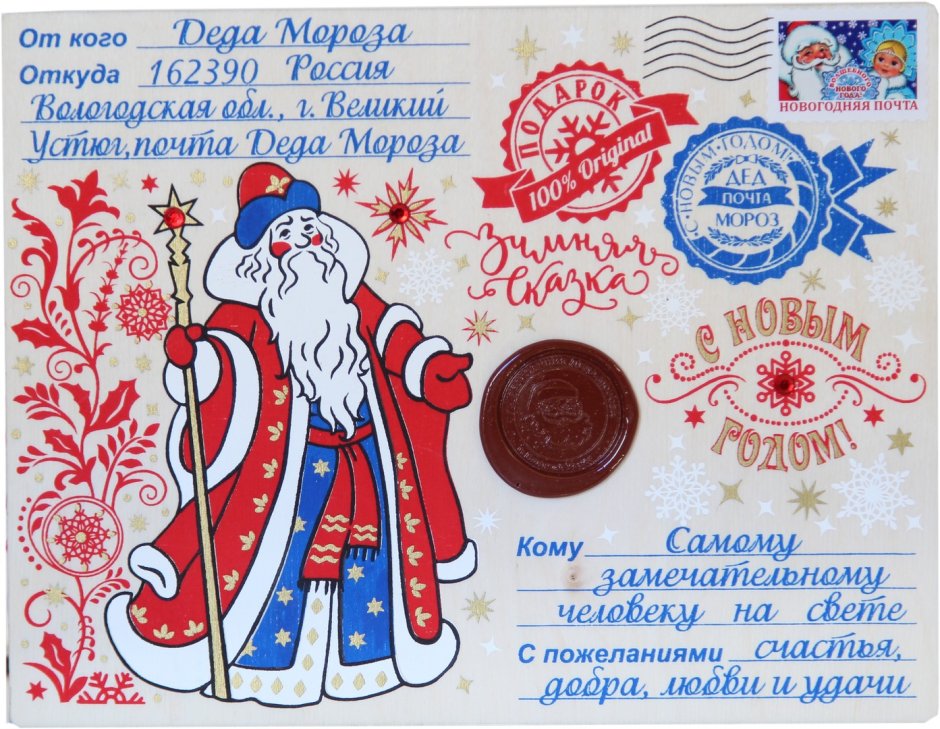 От кого Деда Мороза
Откуда 162390 Россия
Вологодская обл., г. Великий
Устюг, почта Деда Мороза
НОВОГОДНЯЯ ПОЧТА
ВОЛШЕБНОГО
НОВОГО
ГОДА!
ПОДАРОК
100% Original
С НОВЫМ ГОДОМ
ДЕД
ПОЧТА
МОРОЗ
Зимняя
сказка
С НОВЫМ
ГОДОМ!
Кому Самому
замечательному
человеку на свете
С пожеланиями счастья,
добра, любви и удачи